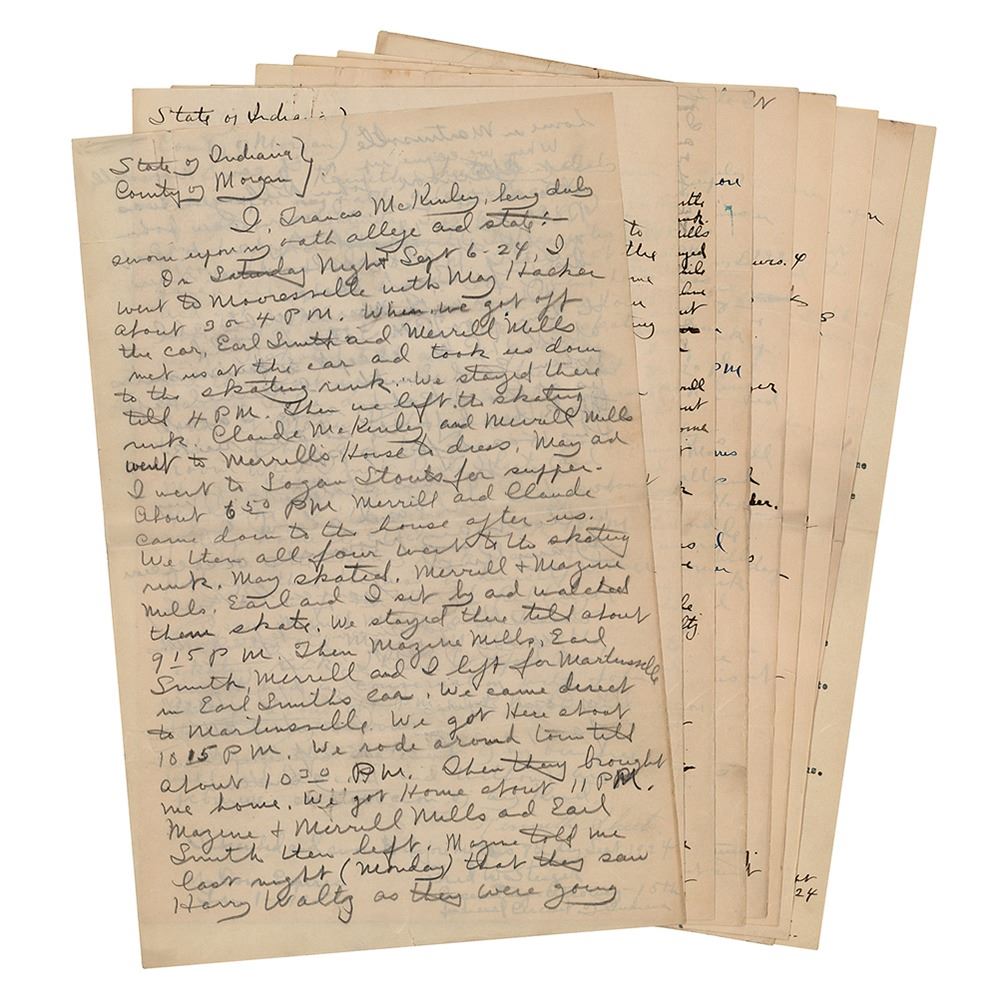 State of Indiana }
State of Indiana }
County of Morgan } .
I, Francis McKinley, being duly
sworn upon my oath allege and state:-
On Saturday Night Sept 6-24, I
went to Mooresville with May Hacker
about 3 or 4 P.M. When we got off
the car, Earl Smith and Merrill Mills
met us at the car and took us down
to the skating rink. We stayed there
till 4 PM. Then we left the skating
rink. Claude McKinley and Merrill Mills
went to Merrills House to dress, May ad
I went to Logan Stouts for supper.
About 6 50 P.M. Merrill and Claude
came down to the house after us.
We then all four went to the skating
rink. May skated. Merrill + Mazine
Mills. Earl and I sit by and watched
them skate. We stayed there till about
9 15 P M. Then Mazine Mills, Earl
Smith, Merrill and I left for Martinsville
in Earl Smiths car. We came direct
to Martinsville. We got Here about
10 15 P M. We rode around town till
about 10 30 P.M. Then they brought
me home. We got Home about 11 P.M.
Mazine + Merrill Mills ad Earl
Smith then left. Mazine told me
last night (Monday) that they saw
Harry Waltz as they were going
to
the
PM
24